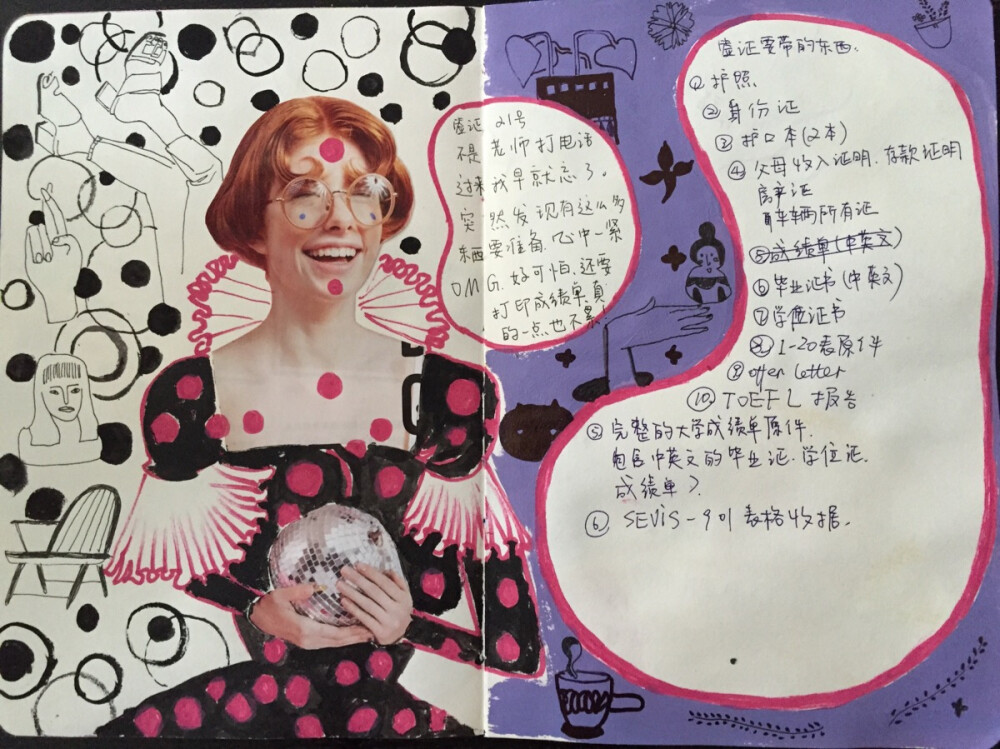 签证 21号
不是 老师打电话
过来我早就忘了。
突然发现有这么多
东西要准备.心中一紧
OMG.好可怕.还要
打印成绩单真
的一点也不累!
签证要带的东西.
① 护照
② 身份证
③ 护口本(2本)
④ 父母收入证明.存款证明
房产证
车辆所有证
⑤成绩单(中英文)
⑥ 毕业证书(中英文)
⑦学位证书
⑧ I-20表原件
⑨ offer letter
⑩ TOEFL 报告
⑤ 完整的大学成绩单原件.
包含中英文的毕业证.学位证.
成绩单?
⑥ SEVIS-901 表格收据.